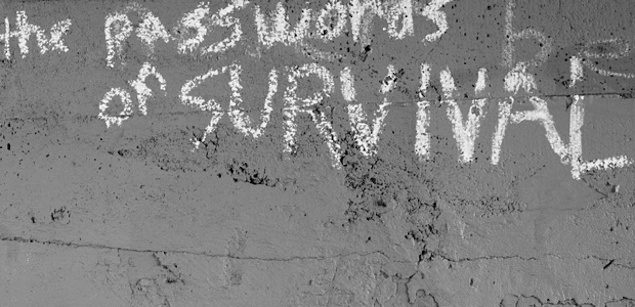 the passwords
of SURVIVAL